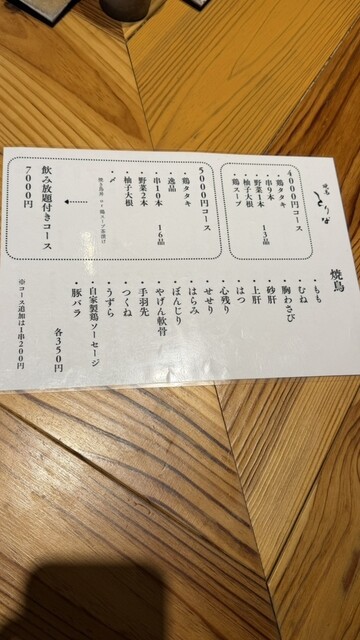 焼鳥 とりな
4000円コース
・鶏タタキ
・串9本
・野菜1本 13品
・柚子大根
・鶏スープ
5000円コース
・鶏タタキ
・逸品
・串10本 16品
・野菜2本
・柚子大根
・〆
飲み放題付きコース
7000円
焼鳥
・もも
・むね
・胸わさび
・砂肝
・上肝
・はつ
・心残り
・せせり
・はらみ
・ぼんじり
・やげん軟骨
・手羽先
・つくね
・うずら
・自家製鶏ソーセージ
・豚バラ
各350円
※コース追加は1串200円